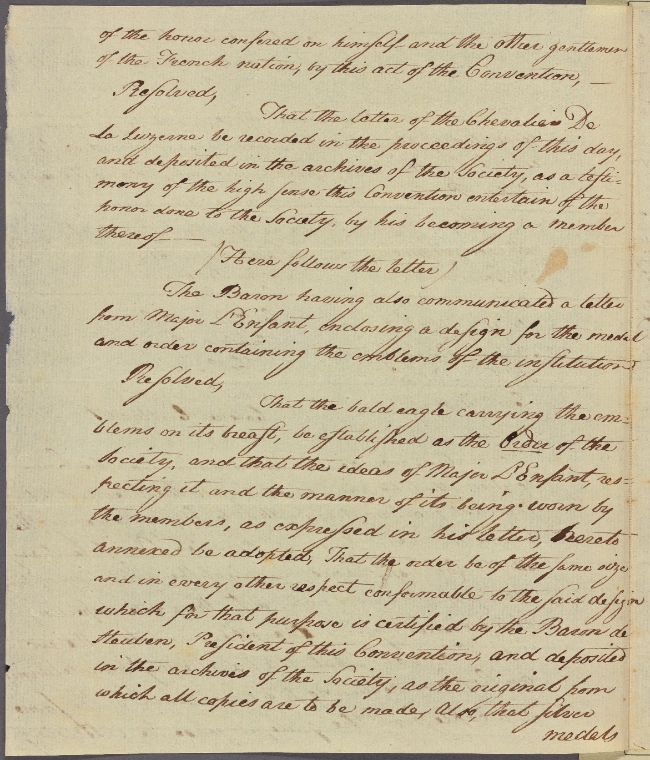 of the honor confered on himself and the other gentlemen
of the French nation, by this act of the Convention, —
Resolved,
That the letter of the Chevalier De
La Luzerne be recorded in the proceedings of this day,
and deposited in the archives of the Society, as a testi-
mony of the high sense this Convention entertain of the
honor done to the Society, by his becoming a member
thereof —
(Here follows the letter)
The Baron having also communicated a letter
from Major L'Enfant, enclosing a design for the medal
and order containing the emblems of the institution
Resolved,
That the bald eagle carrying the em-
blems on its breast, be established as the Order of the
Society, and that the ideas of Major L'Enfant, res-
pecting it and the manner of its being worn by
the members, as expressed in his letter, hereto
annexed be adopted, That the order be of the same size
and in every other respect conformable to the said design
which for that purpose is certified by the Baron de
Steuben, President of this Convention, and deposited
in the archives of the Society, as the original from
which all copies are to be made, Also, that silver
medals